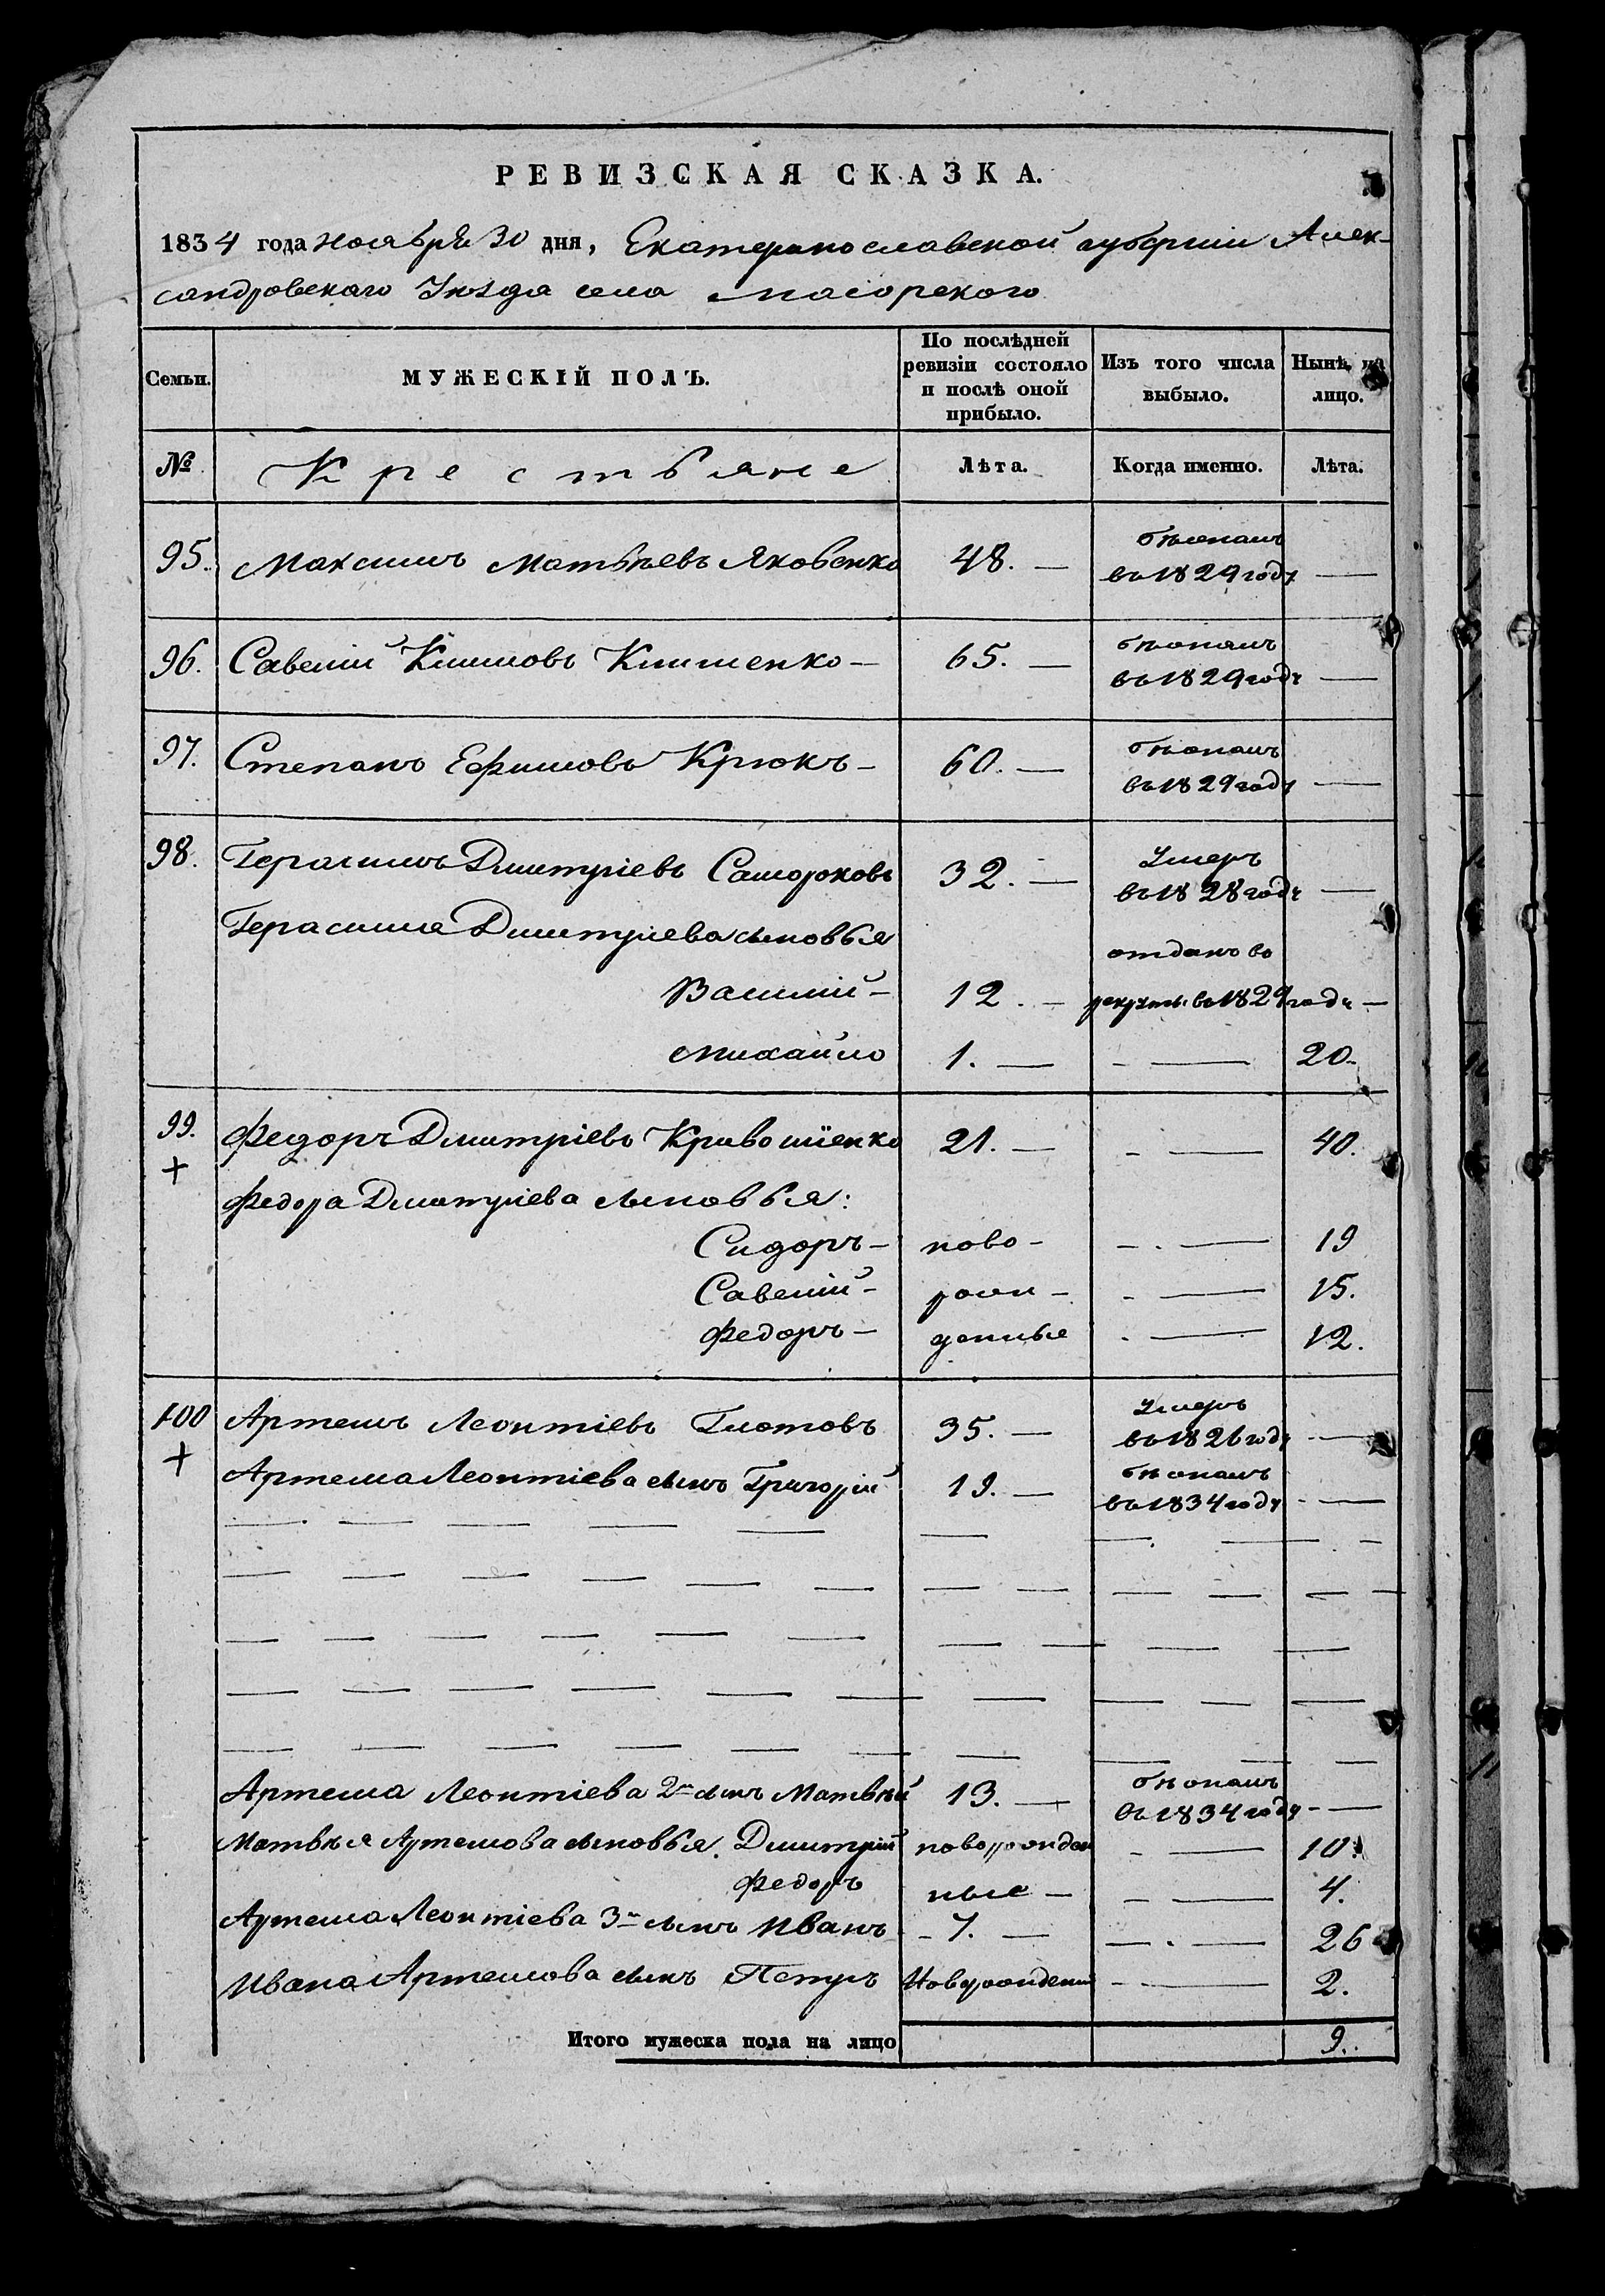 РЕВИЗСКАЯ СКАЗКА.
1834 года ноября 30 дня, Екатеринославской губернiи Алек-
сандровскаго Уѣзда села Маiорского
Семьи. МУЖЕСКIЙ ПОЛЪ. По послѣдней ревизiи состояло и послѣ оной прибыло. Изъ того числа выбыло. Нынѣ на лицо.
№ Крестьяне Лѣта. Когда именно. Лѣта.
95. Максимъ Матвѣевъ Яковенко 48. — бѣжалъ въ 1829 году —
96. Савелiй Климовъ Клименко — 65. — бѣжалъ въ 1829 году —
97. Степанъ Ефимовъ Крюкъ — 60. — бѣжалъ въ 1829 году —
98. Герасимъ Дмитрiевъ 32. — умеръ въ 1828 году —
Герасима Дмитрiева сыновья
Василiй — 12. — отданъ въ рекруты въ 1829 году —
Михайло 1. — - — 20.
99. Федоръ Дмитрiевъ 21. — - — 40.
+
Федора Дмитрiева сыновья:
Сидоръ — ново- - — 19
Савелiй — рож- - — 15.
Федоръ — денные - — 12.
100 Артемъ Леонтiевъ Глотовъ 35. — умеръ въ 1826 году —
+
Артема Леонтiева сынъ Григорiй 19. — бѣжалъ въ 1834 году —
Артема Леонтiева 2й сынъ Матвѣй 13. — бѣжалъ въ 1834 году —
Матвѣя Артемова сыновья. Дмитрiй новорожден - — 10.
Федоръ ные — - — 4.
Артема Леонтiева 3й сынъ Иванъ - 7. — - — 26
Ивана Артемова сынъ Петръ Новорожденный - — 2.
Итого мужеска пола на лицо 9.